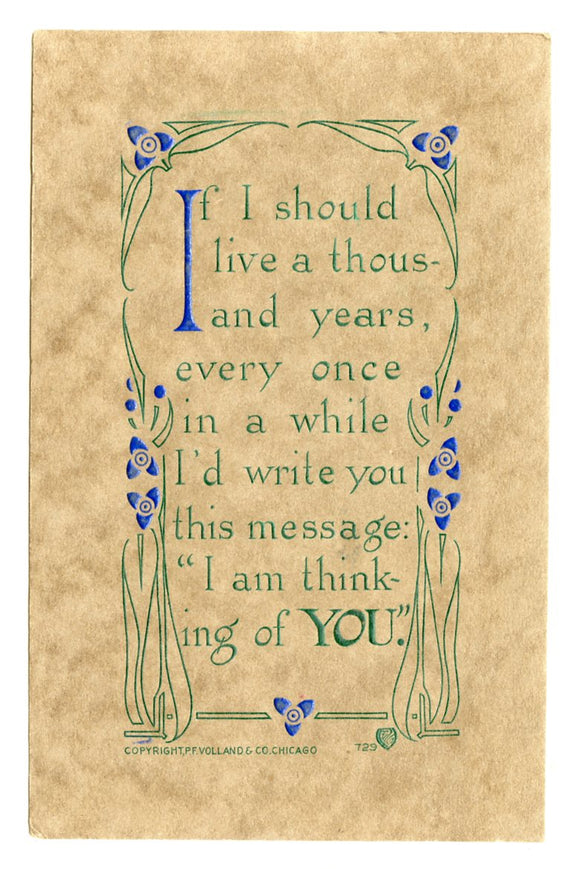 If I should
live a thous-
and years,
every once
in a while
I'd write you
this message:
"I am think-
ing of YOU."
COPYRIGHT, P.F. VOLLAND & CO. CHICAGO 729